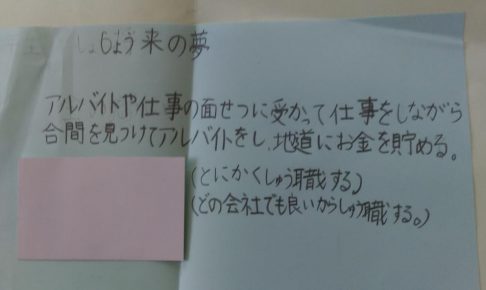 しょうらい来の夢
アルバイトや仕事の面せつに受かって仕事をしながら
合間を見つけてアルバイトをし、地道にお金を貯める。
(とにかくしゅう職する)
(どの会社でも良いからしゅう職する。)